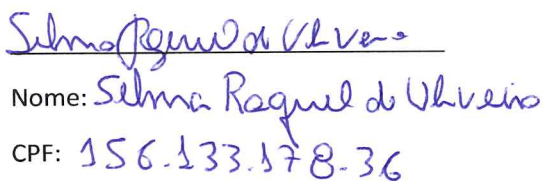 Selma Raquel de Oliveira
Nome: Selma Raquel de Oliveira
CPF: 156.133.178-36